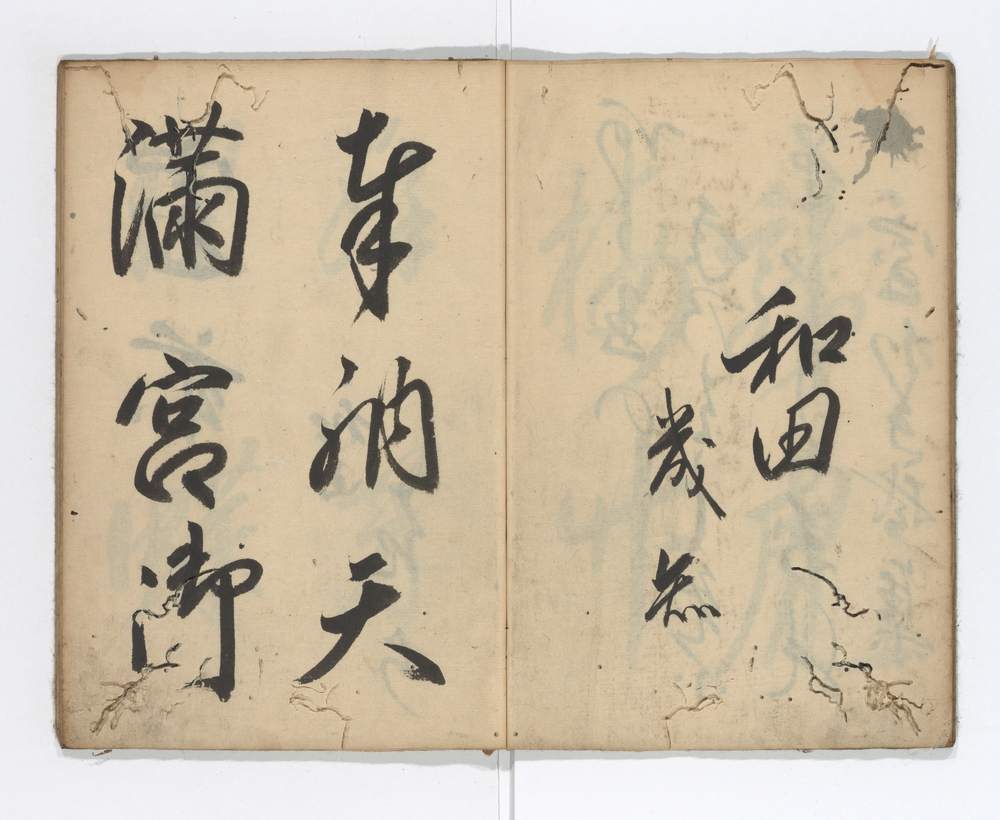 和田
歳
奉納天
満宮御